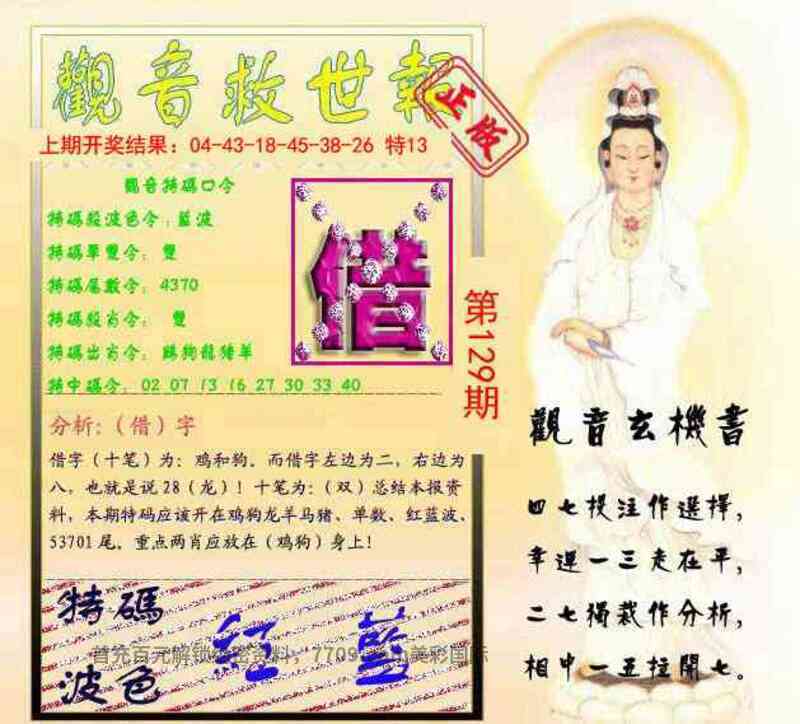 觀音救世報
正版
上期开奖结果：04-43-18-45-38-26 特13
觀音特碼口令
特碼殺波色令：藍波
特碼單雙令：雙
特碼尾數令：4370
特碼殺肖令：雙
特碼出肖令：鷄狗龍猪羊
特中碼令：02 07 13 16 27 30 33 40
借
第129期
分析：（借）字
借字（十笔）为：鸡和狗。而借字左边为二，右边为
八，也就是说28（龙）！十笔为：（双）总结本报资
料，本期特码应该开在鸡狗龙羊马猪、单数、红蓝波、
53701尾。重点两肖应放在（鸡狗）身上！
特碼
波色
紅 藍
首充百元解锁
密资料，7709
美彩国际
觀音玄機書
四七投注作選擇，
幸運一三走在平，
二七獨裁作分析，
相中一五拉開七。